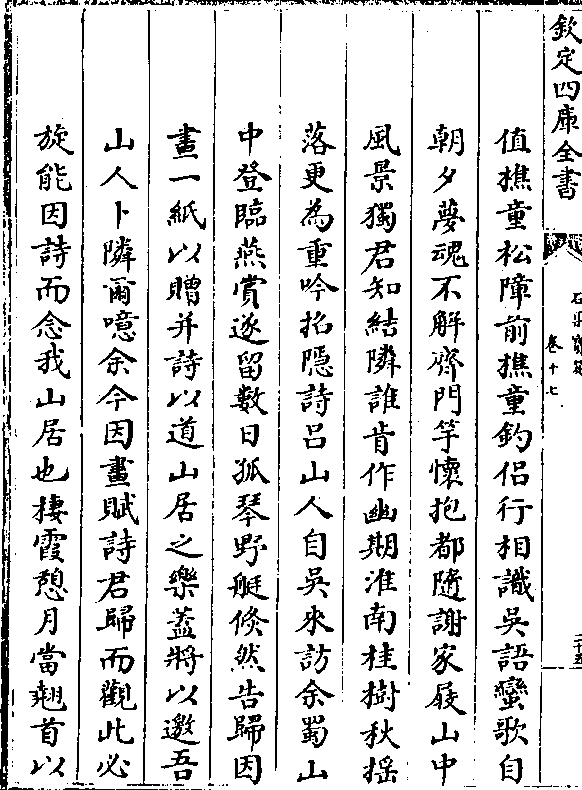 欽定四庫全書
卷十七
值樵童松障前樵童釣侣行相識吳語蠻歌自
朝夕夢魂不解齊門竽懷抱都隨謝家屐山中
風景獨君知結隣誰肯作幽期淮南桂樹秋揺
落更為重吟招隱詩吕山人自吳來訪余蜀山
中登臨燕賞遂留數日孤琴野艇倐然告歸因
畫一紙以贈并詩以道山居之樂蓋將以邀吾
山人卜隣爾噫余今因畫賦詩君歸而觀此必
旋能因詩而念我山居也棲霞憇月當翹首以